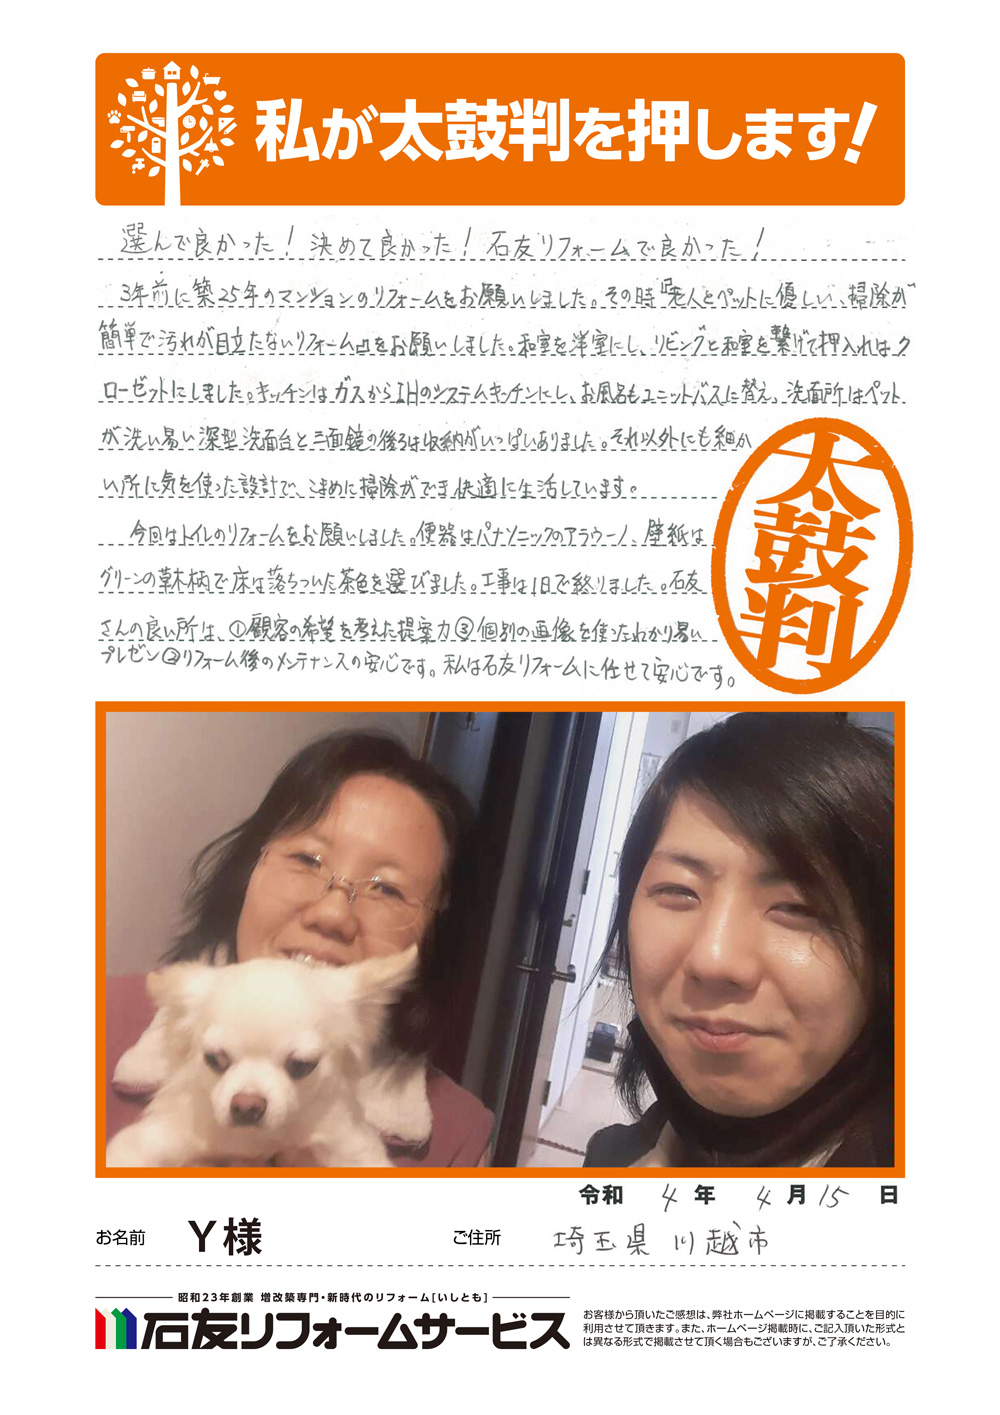 私が太鼓判を押します!
選んで良かった！決めて良かった！石友リフォームで良かった！
3年前に築25年のマンションのリフォームをお願いしました。その時『老人とペットに優しい、掃除が
簡単で汚れが目立たないリフォーム』をお願いしました。和室を洋室にし、リビングと和室を繋げて押入れはク
ローゼットにしました。キッチンはガスからIHのシステムキッチンにし、お風呂もユニットバスに替え、洗面所はペット
が洗い易い深型洗面台と三面鏡の後ろは収納がいっぱいありました。それ以外にも細か
い所に気を使った設計で、こまめに掃除ができ快適に生活しています。
今回はトイレのリフォームをお願いしました。便器はパナソニックのアラウーノ、壁紙は
グリーンの草木柄で床は落ちついた茶色を選びました。工事は1日で終りました。石友
さんの良い所は、①顧客の希望を考えた提案力③個別の画像を使ったわかり易い
プレゼン②リフォーム後のメンテナンスの安心です。私は石友リフォームに任せて安心です。
太鼓判
令和 4 年 4 月 15 日
お名前 Y様 ご住所 埼玉県 川越市
昭和23年創業 増改築専門・新時代のリフォーム[いしとも]
石友リフォームサービス
お客様から頂いたご感想は、弊社ホームページに掲載することを目的に
利用させて頂きます。また、ホームページ掲載時に、ご記入頂いた形式と
は異なる形式で掲載させて頂く場合もございますが、ご了承ください。